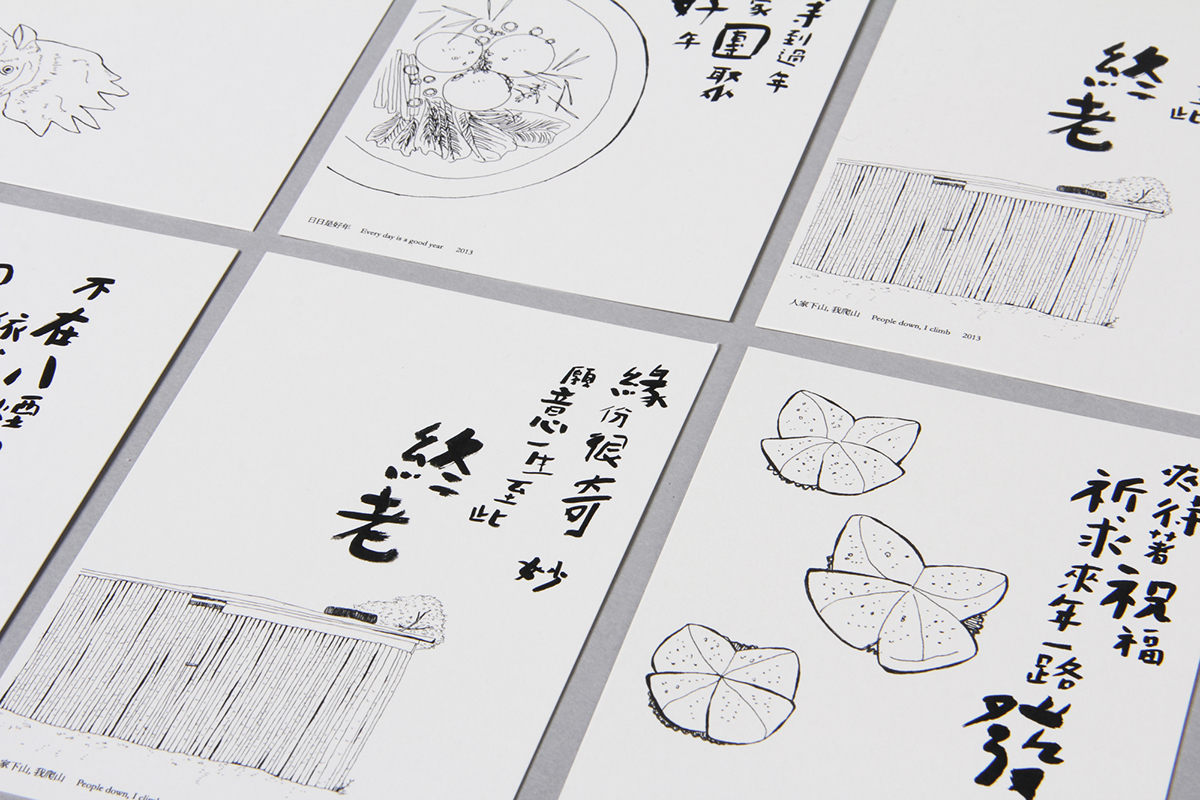 年到過年
團聚
好
年
日日是好年 Every day is a good year 2013
此
終老
人家下山, 我爬山 People down, I climb 2013
不在
八煙
緣份很奇妙
願意一生至此
終老
家下山, 我爬山 People down, I climb
夾待著
祈求祝福
來年一路
發